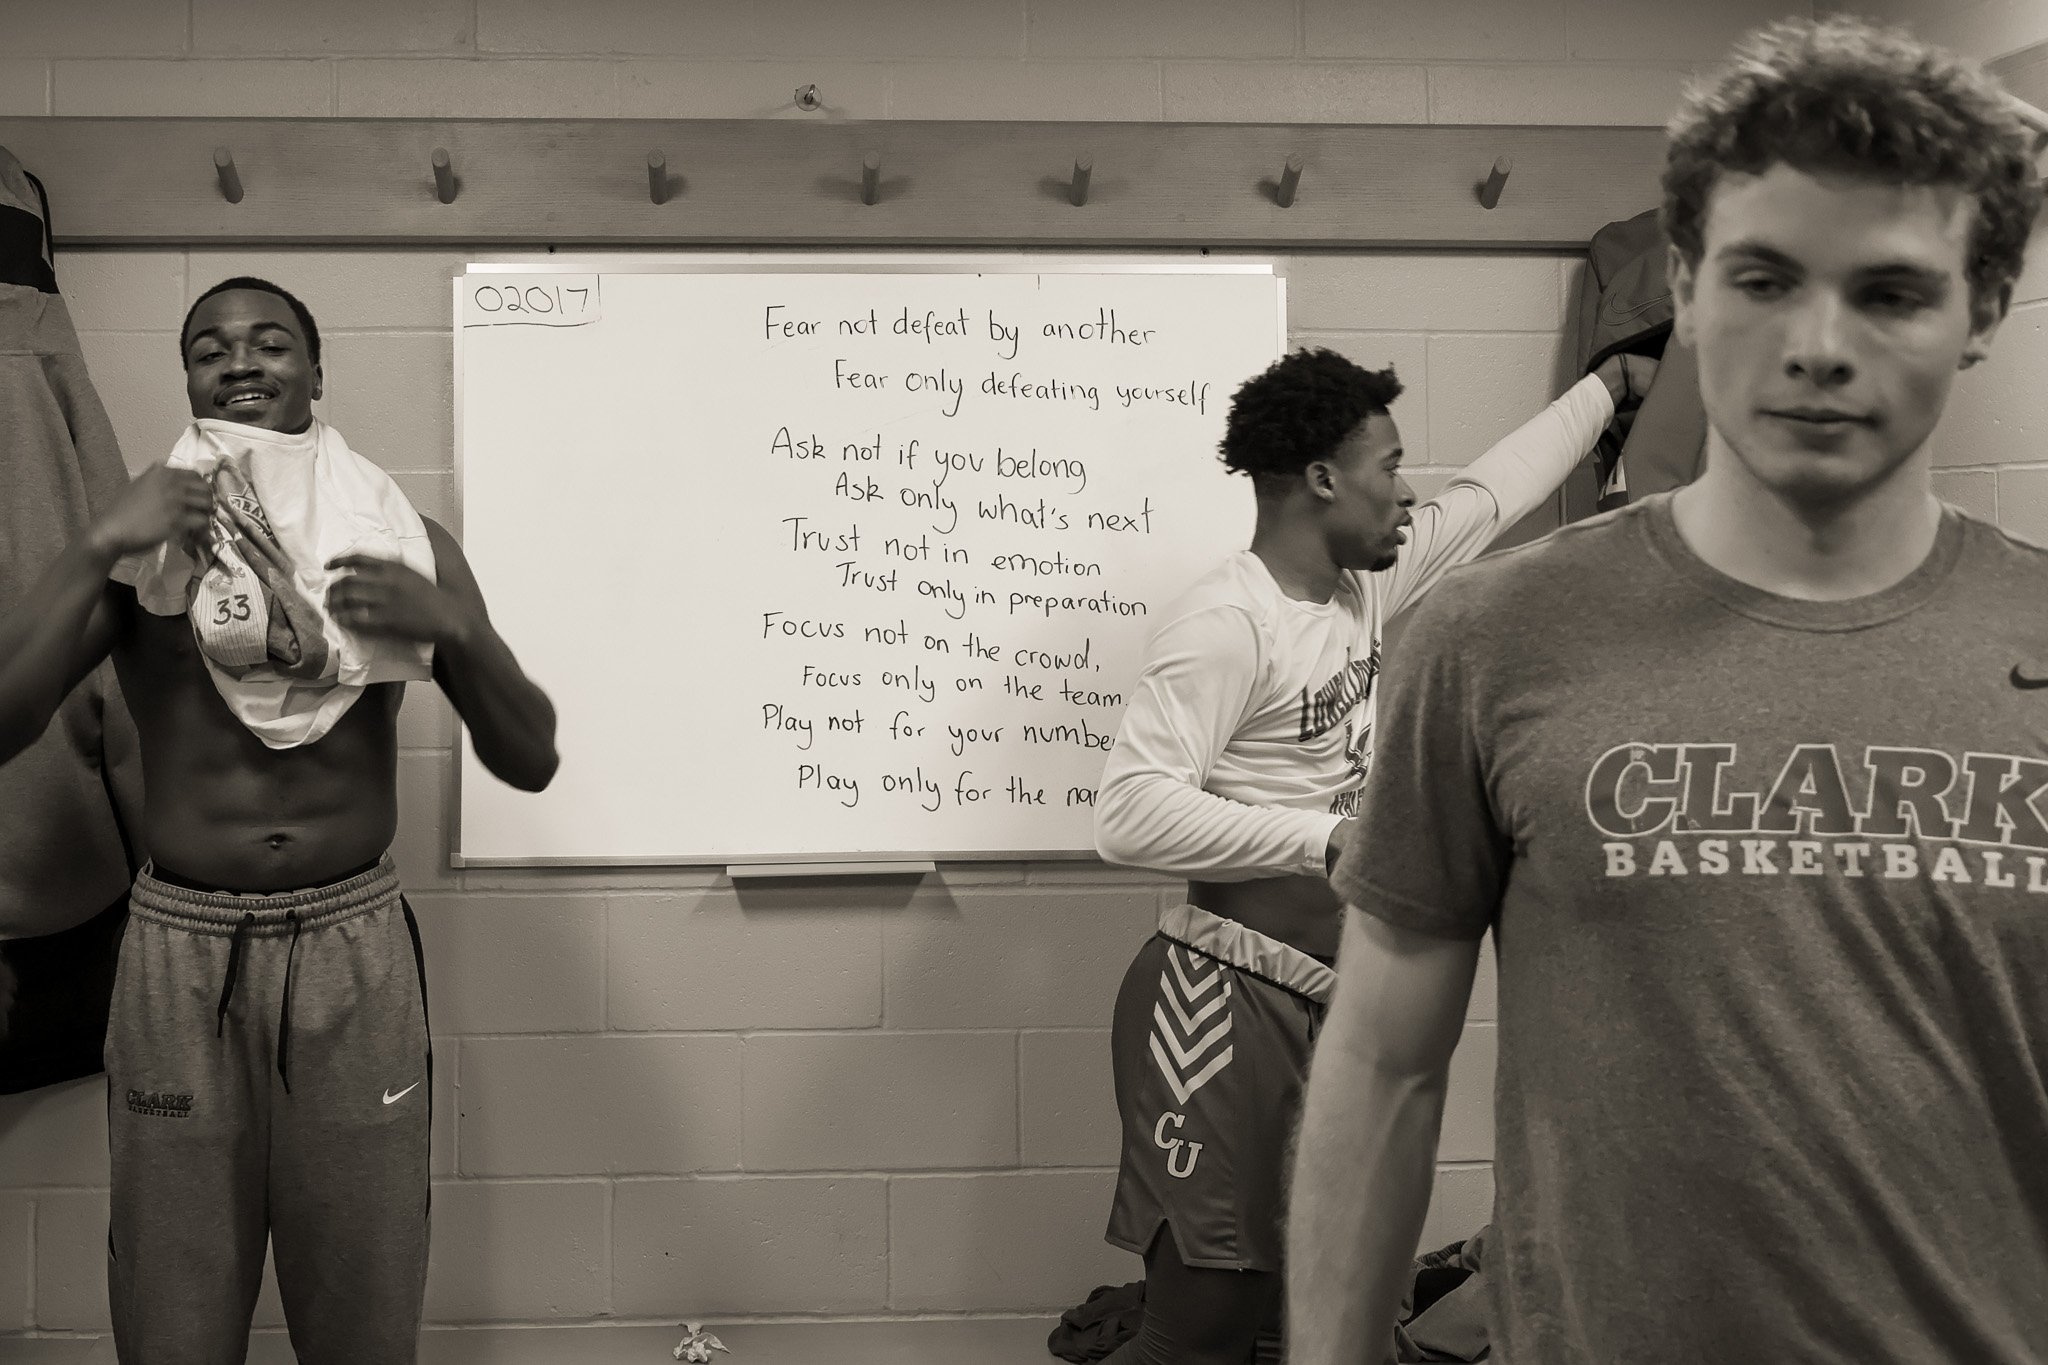 02017
Fear not defeat by another
Fear only defeating yourself
Ask not if you belong
Ask only what's next
Trust not in emotion
Trust only in preparation
Focus not on the crowd,
Focus only on the team.
Play not for your number
Play only for the
33
CLARK
BASKETBALL
CU
CLARK
BASKETBALL